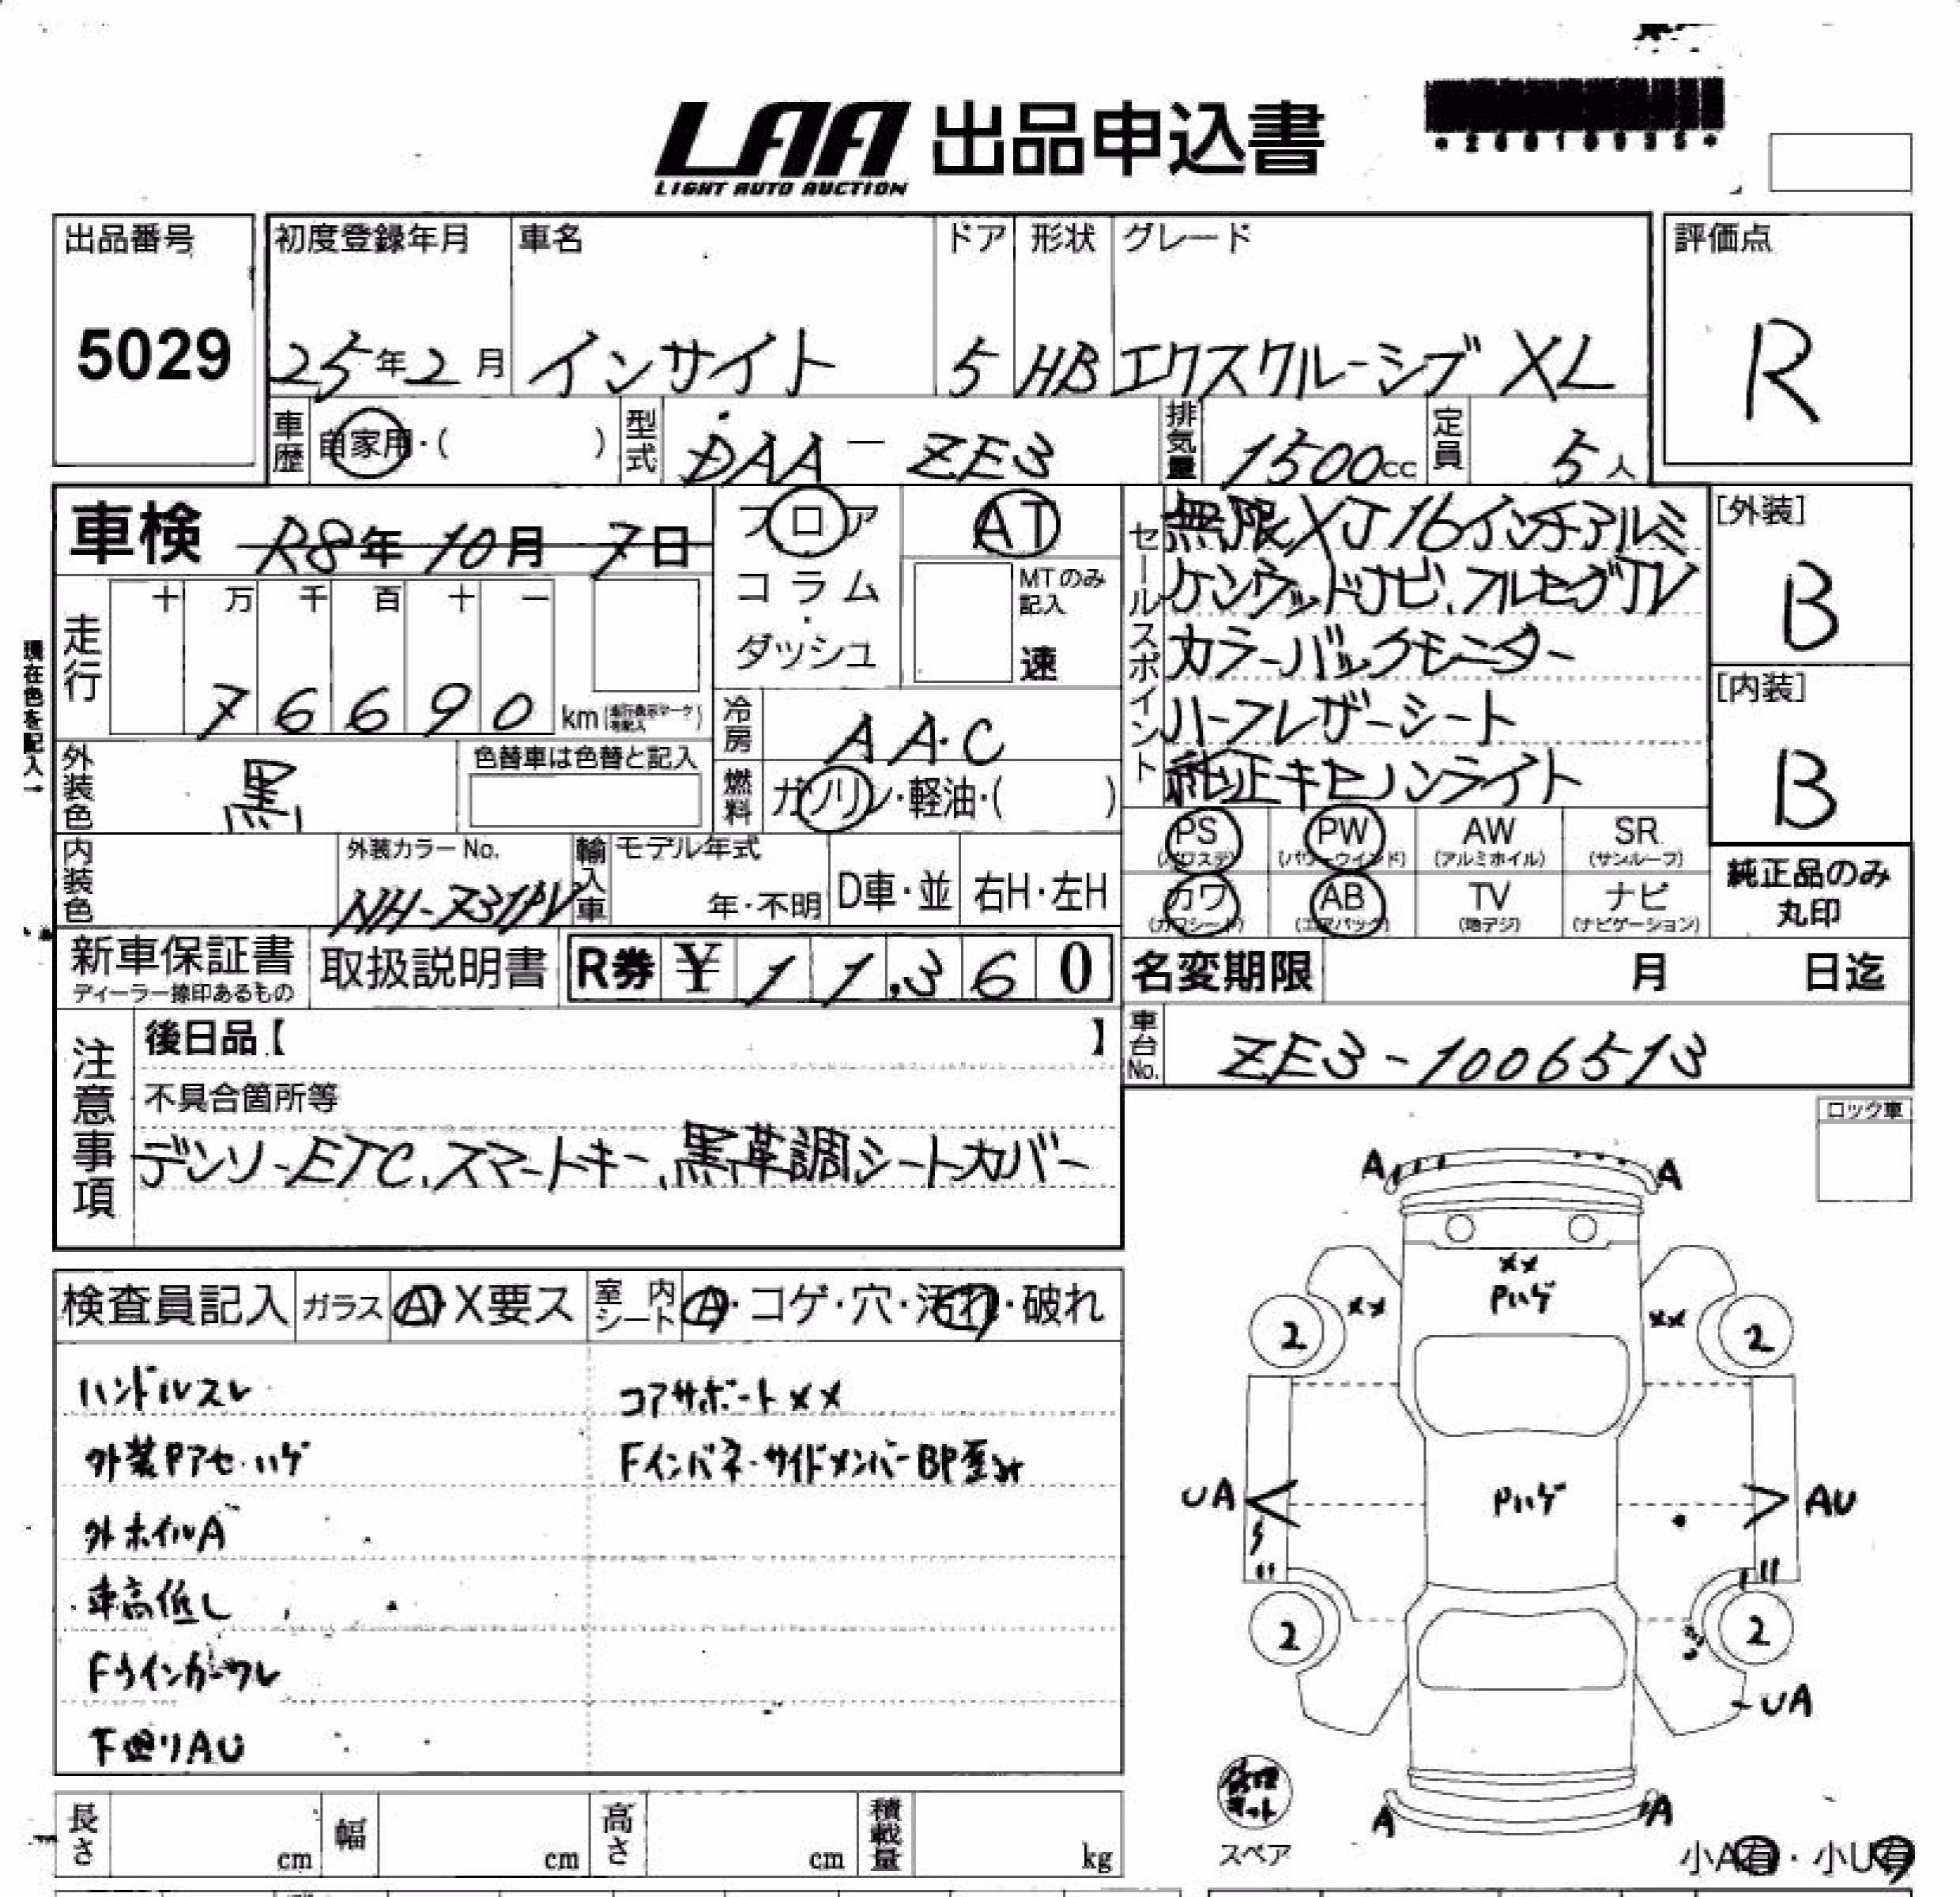 LAA 出品申込書
LIGHT AUTO AUCTION
出品番号 初度登録年月 車名 ドア 形状 グレード 評価点
5029 25年2月 インサイト 5 HB エクスクルーシブ XL R
車歴 自家用・( ) 型式 DAA-ZE3 排気量 1500cc 定員 5人
車検 R8年10月7日 フロア AT
コラム・ダッシュ MTのみ記入 速
走行 十 万 千 百 十 一
76690 km
現在色を記入
冷房 AAC
外装色 黒 色替車は色替と記入
燃料 ガソリン・軽油・( )
セールスポイント
無限XJ16インチアルミ
ケンウッドナビ、フルセグTV
カラーバックモニター
ハーフレザーシート
純正キセノンライト
[外装]
B
[内装]
B
PS (パワステ) PW (パワーウィンド) AW (アルミホイル) SR (サンルーフ)
カワ (カワシート) AB (エアバック) TV (地デジ) ナビ (ナビゲーション)
純正品のみ丸印
内装色 外装カラーNo. NH-731PV 輸入車 モデル年式 年・不明 D車・並 右H・左H
新車保証書 ディーラー捺印あるもの 取扱説明書 R券 ¥ 11,360
名変期限 月 日迄
車台No. ZE3-1006513
注意事項
後日品【 】
不具合箇所等
デンソーETC、スマートキー、黒革調シートカバー
ロック車
検査員記入 ガラス A・X要ス 室内シート A・コゲ・穴・汚れ・破れ
ハンドルスレ コアサポートXX
外装Pアセ・ハゲ Fインパネ・サイドメンバーBP歪み
外ホイルA
車高低し
Fウインカーワレ
下廻りAU
A A
XX
Pハゲ
XX XX
2 2
UA Pハゲ AU
2 2
UA
A A
スペア
小A有・小U有
長さ cm 幅 cm 高さ cm 積載量 kg